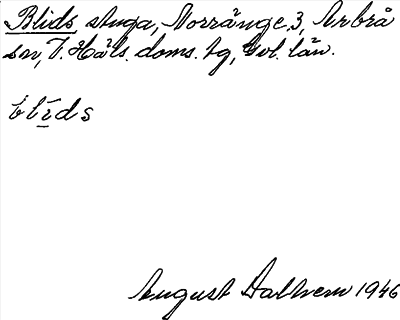 Blids stuga, Norränge 3, Arbrå
sn, V. Häls. doms. tg, Gvl. län.
blids
August Dalhem 1946